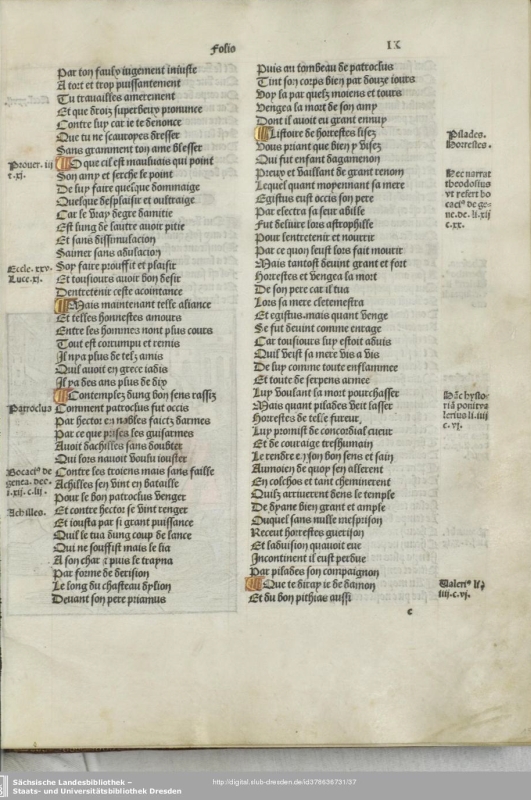 Folio IX
Par ton faulx iugement iniuste
A tort et trop puissantement
Tu travailles amerement
Et que droiz superbeux pronunce
Contre luy car ie te denonce
Que tu ne scauroyes dresser
Sans gramment ton ame blesser
O que cil est mauluais qui point
Prouer. iii
r.xi.
Son amy et serche le point
De luy faire quelque dommaige
Quelque desplaisir et oultraige
Car le vray degre damitie
Est lung de lautre avoir pitie
Et sans dissimulacion
Sauuer sans adulacion
Eccle. xxv.
Soy faire prouffit et plaisir
Luce.xi.
Et tousiours avoir bon desir
Dentretenir ceste acointance
Mais maintenant telle aliance
Et telles honnestes amours
Entre les hommes nont plus cours
Tout est corrumpu et remis
Il nya plus de telz amis
Quil avoit en grece iadis
Il ya des ans plus de dix
Contemplez dung bon sens rassiz
Patroclus
Comment patroclus fut occis
Par hector es nobles faictz darmes
Par ce que prises les guisarmes
Avoit dachilles sans doubter
Qui lors navoit voulu iouster
Bocaci9 de
genea. deo.
l.xii. c.lii.
Contre les troiens mais sans faille
Achilles sen vint en bataille
Pour le bon patroclus venger
Achilles.
Et contre hector se vint renger
Et iousta par si grant puissance
Quil le tua dung coup de lance
Qui ne souffist mais le lia
A son char et puis le trayna
Par forme de derision
Le long du chasteau dylion
Devant son pere priamus
Puis au tombeau de patroclus
Tint son corps bien par douze iours
Voy la par quelz moiens et tours
Vengea la mort de son amy
Dont il avoit eu grant ennuy
Listoire de horrestes lisez
Pilades.
Horrestes.
Vous priant que bien y visez
Qui fut enfant dagamenon
Preux et vaillant de grant renom
Hec narrat
theodosius
vt refert bo
caci9 de ge-
ne.de.li.xii
c.xx.
Lequel quant moyennant sa mere
Egistus eust occis son pere
Par electra sa seur abille
Fut delivre lors astrophille
Pour lentretenir et nourrir
Par ce quon leust lors fait mourir
Mais tantost devint grant et fort
Horrestes et vengea la mort
De son pere car il tua
Lors sa mere cletemestra
Et egistus.mais quant venge
Se fut devint comme enrage
Car tousiours luy estoit aduis
Quil veist sa mere vis a vis
De luy comme toute enflammee
Et toute de serpens armee
Luy voulant la mort pourchasser
Mais quant pilades veit lasser
Horrestes de telle fureur
Luy promist de concordial cueur
Et de couraige treshumain
Le rendre en son bon sens et sain
Aumoien de quoy sen allerent
En colchos et tant cheminerent
Quilz arriverent dens le temple
De dyane bien grant et ample
Ouquel sans nulle mesprison
Receut horrestes guerison
Et laduision quavoit eue
Incontinent il eust perdue
Par pilades son compaignon
Que te diray ie de damon
Et du bon pithias aussi
c
Sächsische Landesbibliothek –
Staats- und Universitätsbibliothek Dresden
http://digital.slub-dresden.de/id376636731/37